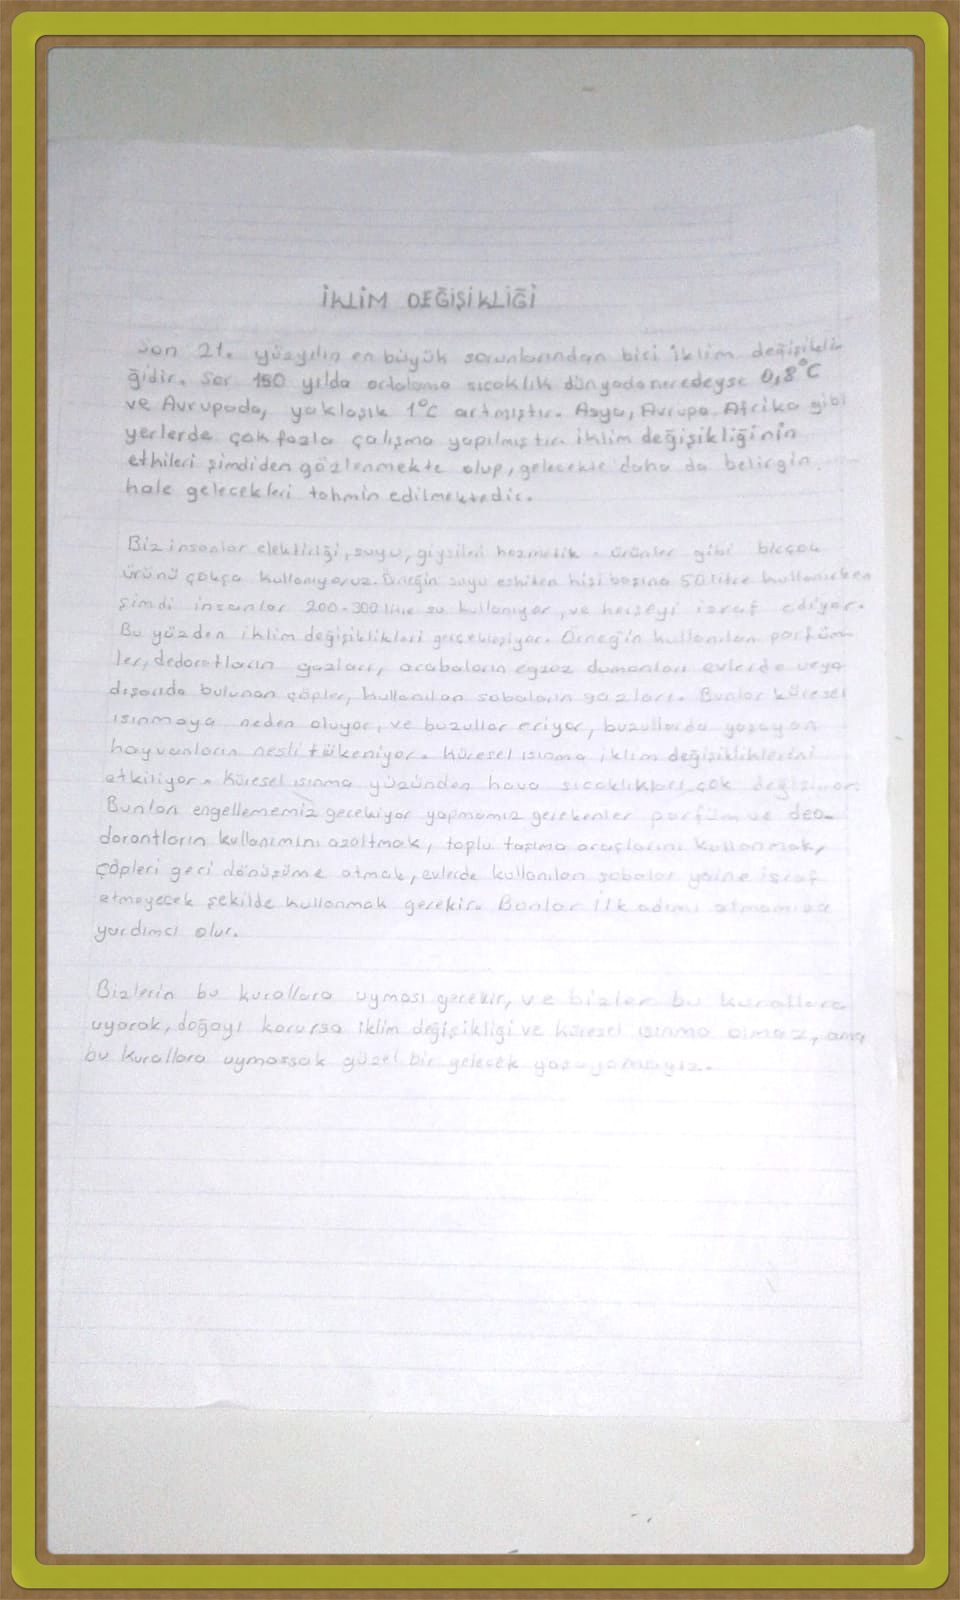 İKLİM DEĞİŞİKLİĞİ
Son 21. yüzyılın en büyük sorunlarından biri iklim değişikli-
ğidir. Sor 150 yılda ortalama sıcaklık dünyada neredeyse 0,8°C
ve Avrupada, yaklaşık 1°C artmıştır. Asya, Avrupa, Afrika gibi
yerlerde çok fazla çalışma yapılmıştır. İklim değişikliğinin
etkileri şimdiden gözlenmekte olup, gelecekte daha da belirgin
hale gelecekleri tahmin edilmektedir.
Biz insanlar elektiriği, suyu, giysileri kozmetik ürünler gibi birçok
ürünü çokça kullanıyoruz. Örneğin suyu eskiden kişi başına 50 litre kullanırken
şimdi insanlar 200-300 litre su kullanıyor, ve herşeyi israf ediyor.
Bu yüzden iklim değişiklikleri gerçekleşiyor. Örneğin kullanılan parfüm-
ler, dedorantların gazları, arabaların egzoz dumanları evlerde veya
dışarıda bulunan çöpler, kullanılan sobaların gazları. Bunlar küresel
ısınmaya neden oluyor, ve buzullar eriyor, buzullarda yaşayan
hayvanların nesli tükeniyor. Küresel ısınma iklim değişikliklerini
etkiliyor. Küresel ısınma yüzünden hava sıcaklıkları çok değişiyor.
Bunları engellememiz gerekiyor yapmamız gerekenler parfüm ve deo-
dorantların kullanımını azaltmak, toplu taşıma araçlarını kullanmak,
çöpleri geri dönüşüme atmak, evlerde kullanılan sobalar yaine israf
etmeyecek şekilde kullanmak gerekir. Bunlar ilk adımı atmamıza
yardımcı olur.
Bizlerin bu kurallara uyması gerekir, ve bizler bu kurallara
uyarak, doğayı korursa iklim değişikliği ve küresel ısınma olmaz, ama
bu kurallara uymassak güzel bir gelecek yaşayamayız.